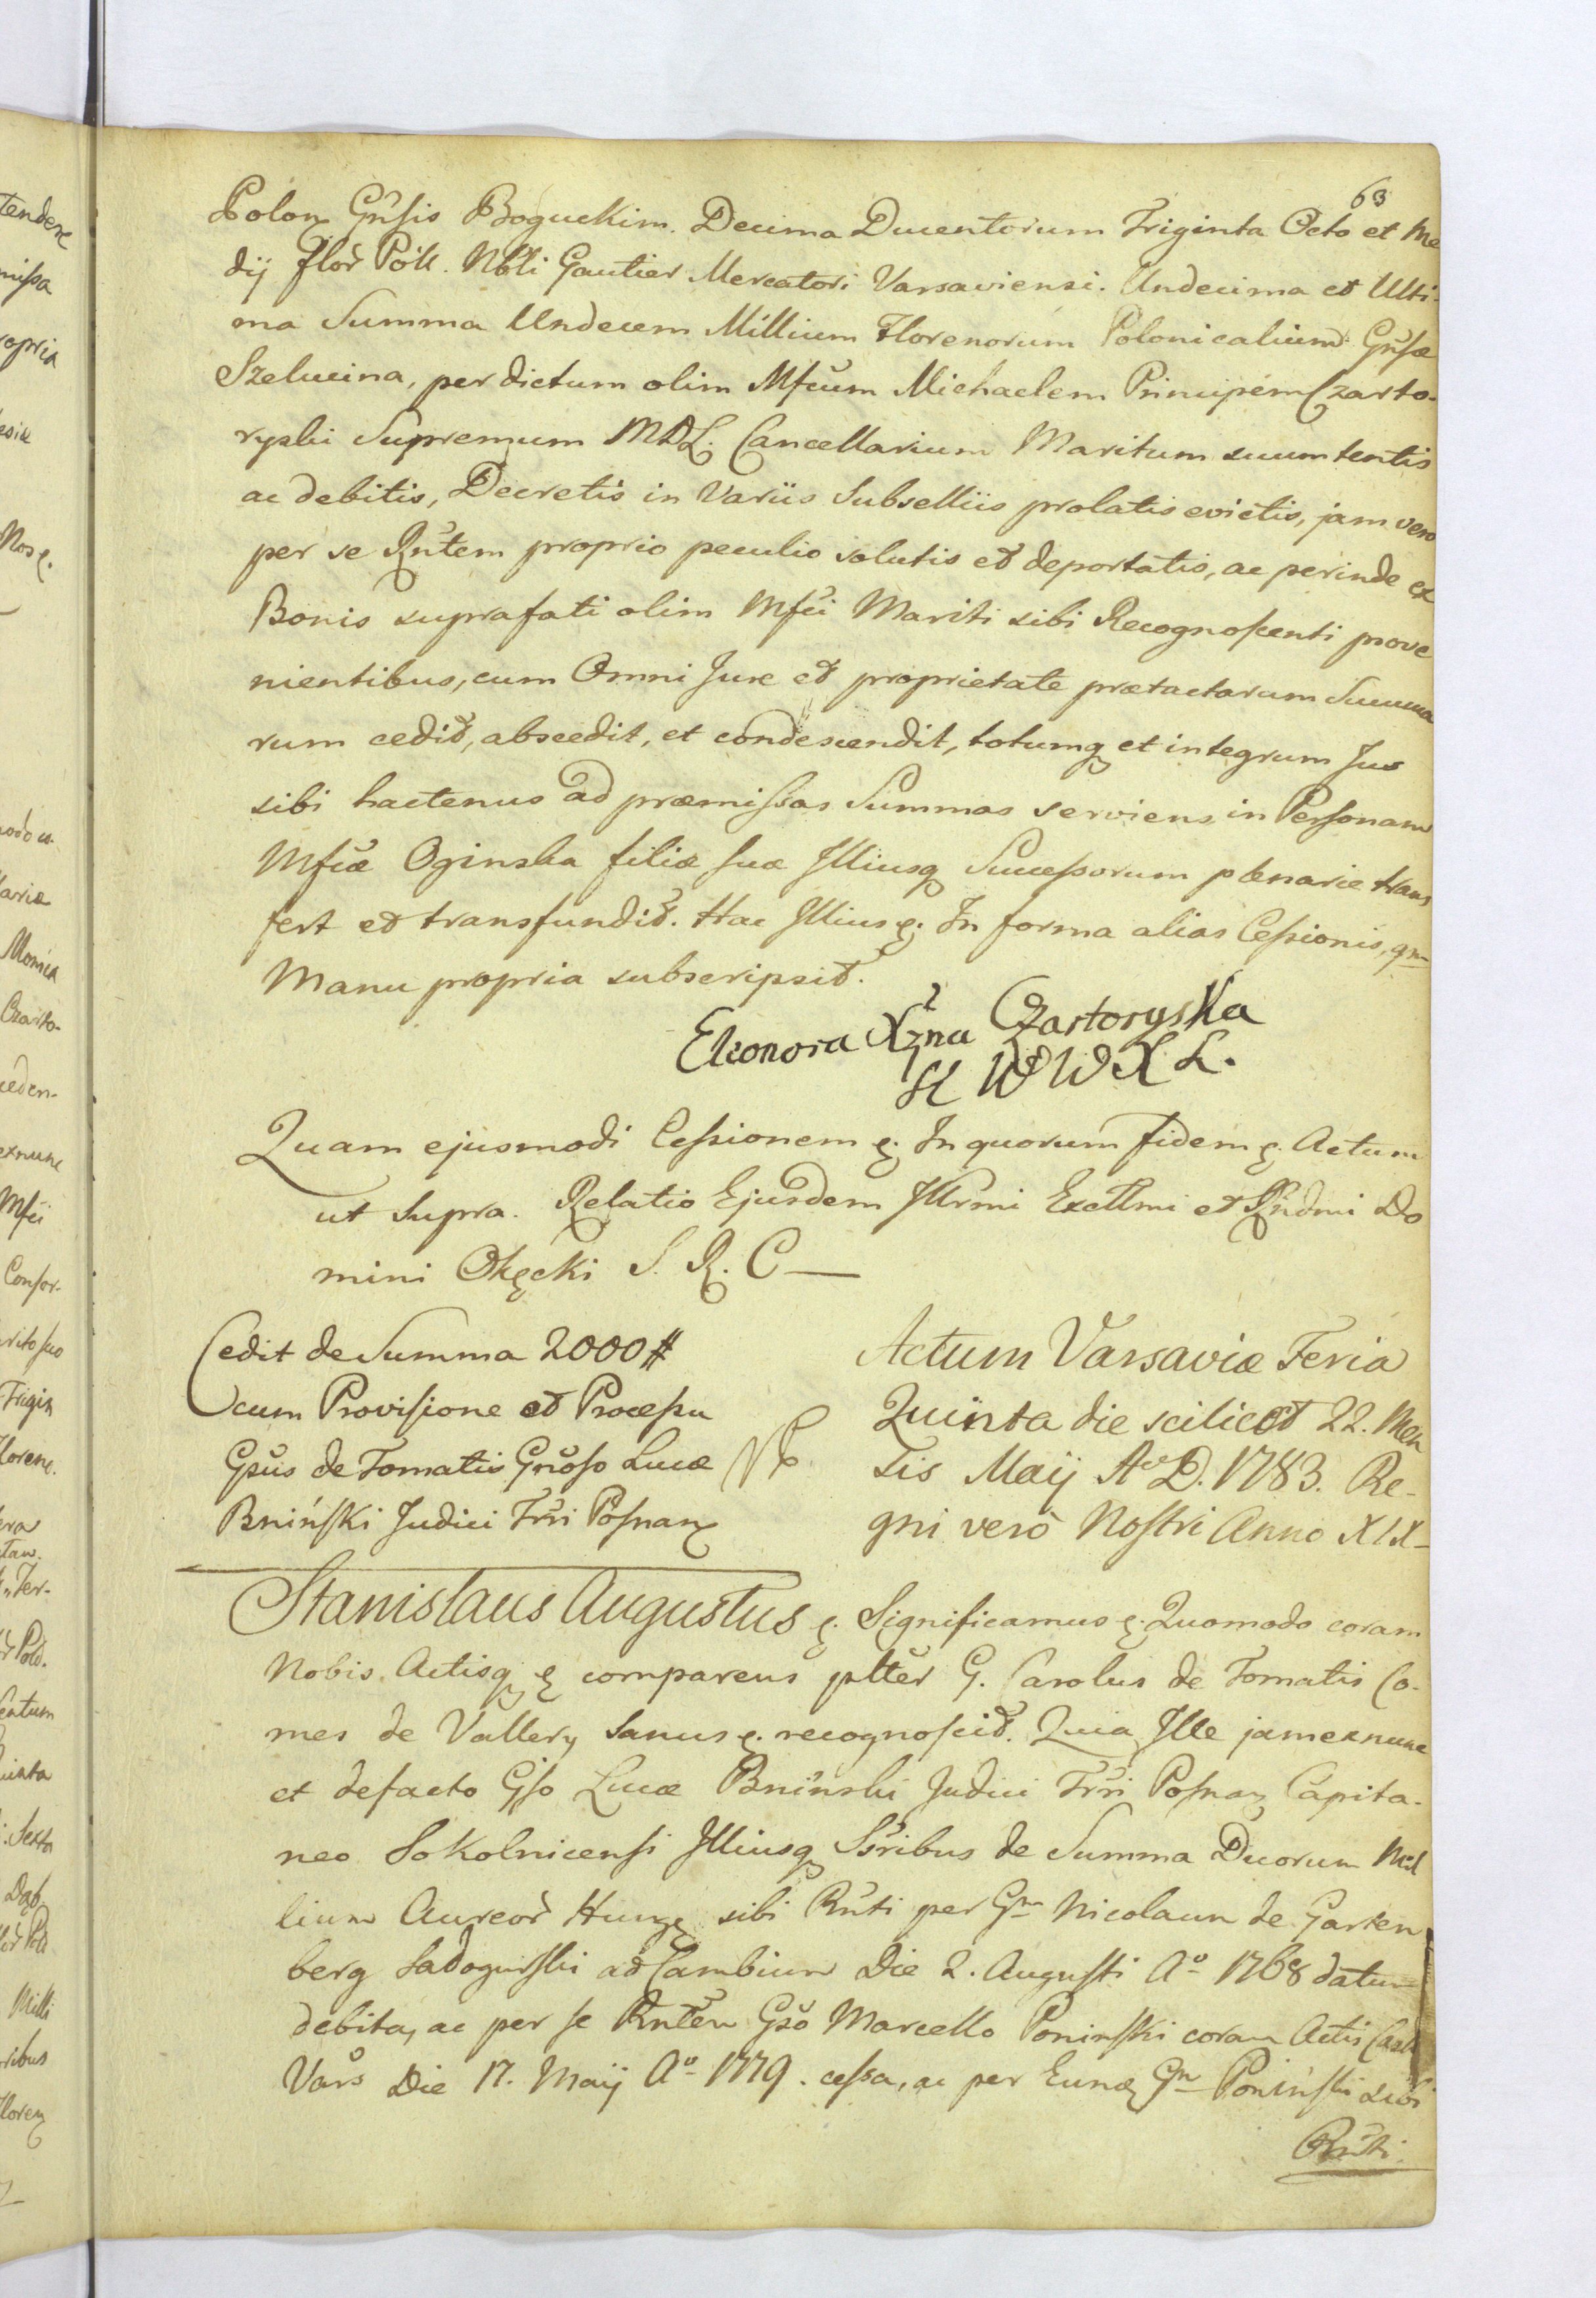 63
Polon Gnsis Boguckim. Decima Ducentorum Triginta Octo et Me
dij flor Poll. Nbli Gautier Mercatori Varsaviensi. Undecima et Ulti-
ma Summa Undecem Millium Florenorum Polonicalium Gnsæ
Szelucina, per dictum olim Mfcum Michaelem Principem Czarto-
ryski Supremum MDL. Cancellarium Maritum suum tentis
ac debitis, Decretis in Variis Subselliis prolatis evictis, jam vero
per se Rntem proprio peculio solutis et deportatis, ac perinde ex
Bonis suprafati olim Mfci Mariti sibi Recognoscenti prove
nientibus, cum Omni Jure et proprietate prætactarum Summa
rum cedit, abscedit, et condescendit, totumq et integrum Jus
sibi hactenus ad præmissas Summas serviens in Personam
Mfcæ Oginska filiæ suæ Illiusq Successorum plenarie trans
fert et transfundit. Hac Illius &. In forma alias Cessionis, qm
Manu propria subscripsit.
Eleonora Xzna Czartoryska
K W W X L.
Quam ejusmodi Cessionem &. In quorum fidem &. Actum
ut supra. Relatio Ejusdem Illrmi Excllmi et Rndmi Do
mini Okęcki S. R. C
Cedit de Summa 2000 #
cum Provisione et Processu
Gsus de Tomatis Gnoso Lucæ
Bniński Judici Trri Posnan
Actum Varsaviæ Feria
Quinta die scilicet 22. Men
sis Maij Ao D. 1783. Re-
gni verò Nostri Anno XIX
Stanislaus Augustus &. Significamus &. Quomodo coram
Nobis Actisq & comparens pltter G. Carolus de Tomatis Co-
mes de Vallery Sanus &. recognoscit. Quia Ille jamexnunc
et defacto Gso Lucæ Bninski Judici Trri Posnan Capita-
neo Sokolnicensi Illiusq Ssribus de Summa Duorum Mil
lium Aureor Hung sibi Rnti per Gm Nicolaum de Garten
berg Sadogurski ad Cambium Die 2. Augusti Ao 1768 datum
debita, ac per se Rntem Gso Marcello Poninski coram Actis Cast
Vars Die 17. Maij Ao 1779. cessa, ac per Eund Gm Poniński sibi
Rnti.